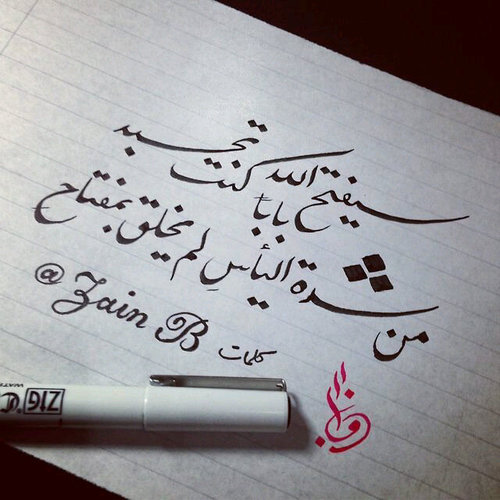 سيفتح الله باباً كنت تحسبه
من شدة اليأسِ لم يخلق بمفتاح
كلمات @Zain B
ZIG